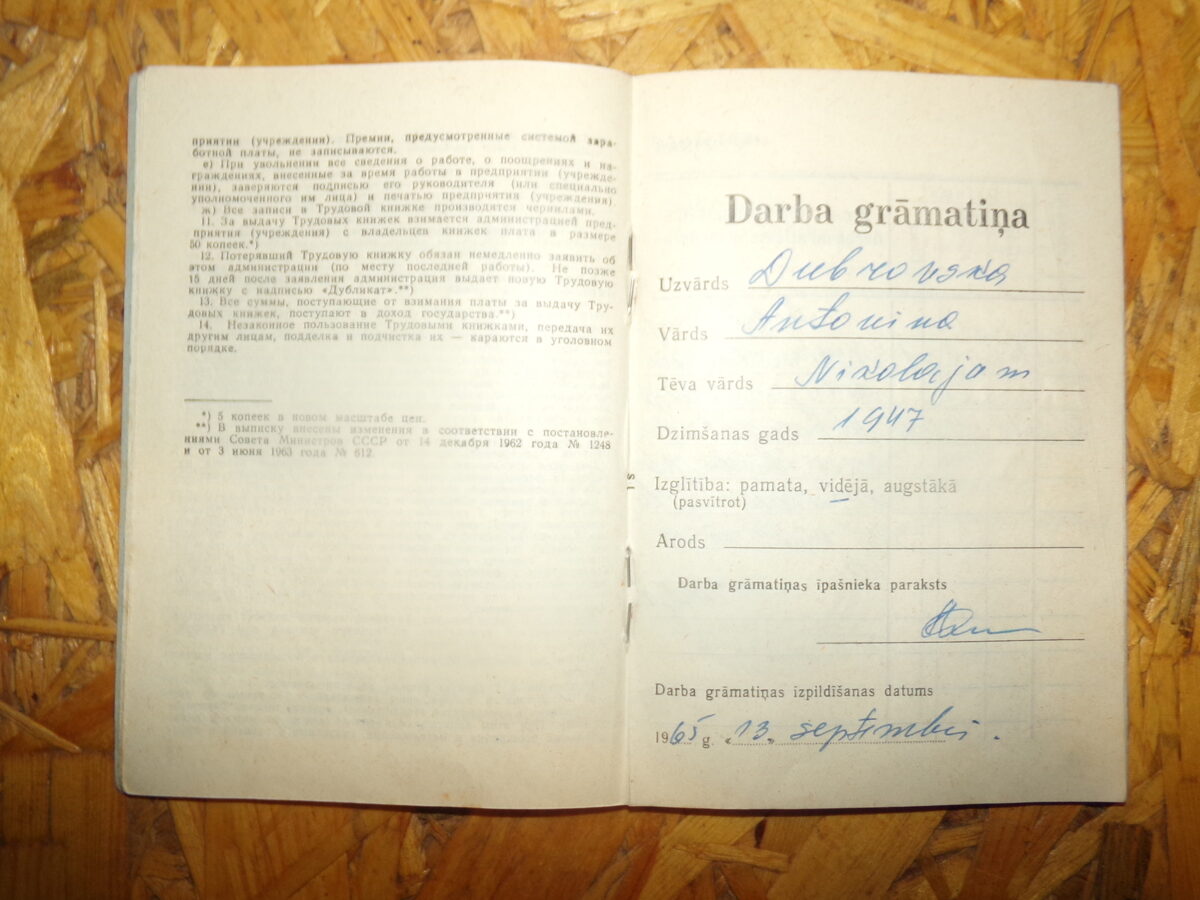 приятии (учреждении). Премии, предусмотренные системой зара-
ботной платы, не записываются.
е) При увольнении все сведения о работе, о поощрениях и на-
граждениях, внесенные за время работы в предприятии (учрежде-
нии), заверяются подписью его руководителя (или специально
уполномоченного им лица) и печатью предприятия (учреждения).
ж) Все записи в Трудовой книжке производятся чернилами.
11. За выдачу Трудовых книжек взимается администрацией пред-
приятия (учреждения) с владельцев книжек плата в размере
50 копеек.*)
12. Потерявший Трудовую книжку обязан немедленно заявить об
этом администрации (по месту последней работы). Не позже
15 дней после заявления администрация выдает новую Трудовую
книжку с надписью «Дубликат».**)
13. Все суммы, поступающие от взимания платы за выдачу Тру-
довых книжек, поступают в доход государства.**)
14. Незаконное пользование Трудовыми книжками, передача их
другим лицам, подделка и подчистка их — караются в уголовном
порядке.
*) 5 копеек в новом масштабе цен.
**) В выписку внесены изменения в соответствии с постановле-
ниями Совета Министров СССР от 14 декабря 1962 года № 1248
и от 3 июня 1963 года № 612.
Darba grāmatiņa
Uzvārds Dubrovska
Vārds Antonina
Tēva vārds Nikolajam
Dzimšanas gads 1947
Izglītība: pamata, vidējā, augstākā
(pasvītrot)
Arods
Darba grāmatiņas īpašnieka paraksts
Darba grāmatiņas izpildīšanas datums
1965 g. «13» septembrī.